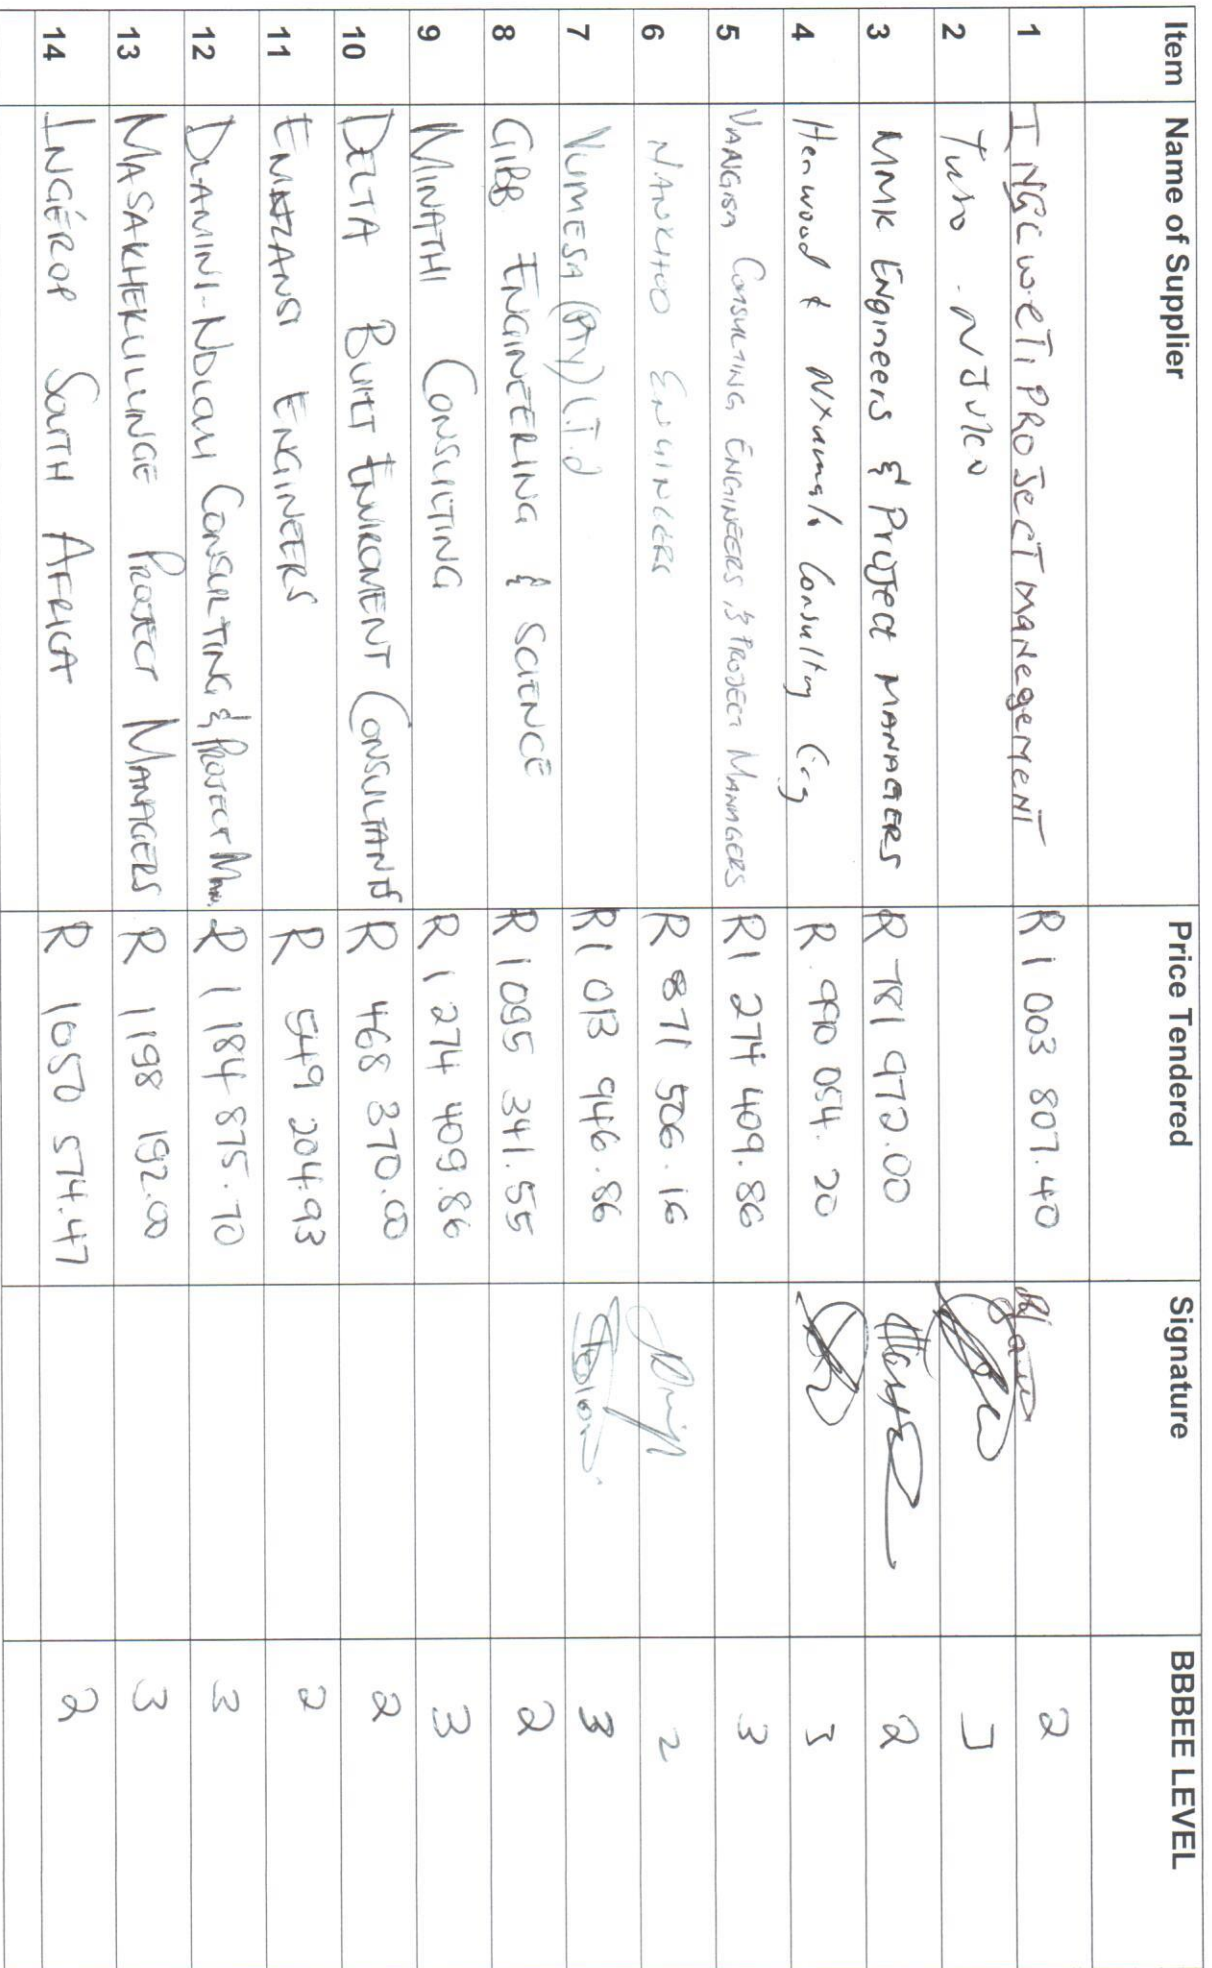 Item Name of Supplier Price Tendered Signature BBBEE LEVEL
1 INGCWETI PROJECT MANEGEMENT R 1 003 807.40 2
2
3 MMK ENgineers & PROJECT MANAGERS R 781 972.00 2
4 Henwood & Nxumalo Consulting R 990 054.20
5 VANGISA CONSULTING ENGINEERS & PROJECT MANAGERS R1 274 409.86 3
6 NANKHOO ENGINEERS R 871 506.16 2
7 VUMESA (Pty) LTd R1 013 946.86 3
8 GIBB ENGINEERING & SCIENCE R 1 095 341.55 2
9 MINATHI CONSULTING R 1 274 409.86 3
10 DELTA BUILT ENVIROMENT CONSULTANTS R 468 370.00 2
11 EMZANSI ENGINEERS R 549 204.93 2
12 DLAMINI-NDLOVU CONSULTING & PROJECT MAN. R 1 184 875.70 3
13 MASAKHEKULUNGE PROJECT MANAGERS R 1 198 192.00 3
14 INGÉROP SOUTH AFRICA R 1050 574.47 2